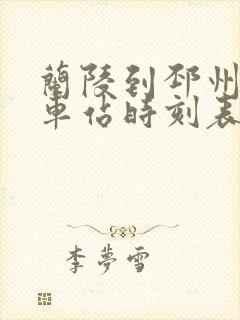 蘭陵到邳州
車佔時刻表
李夢雪